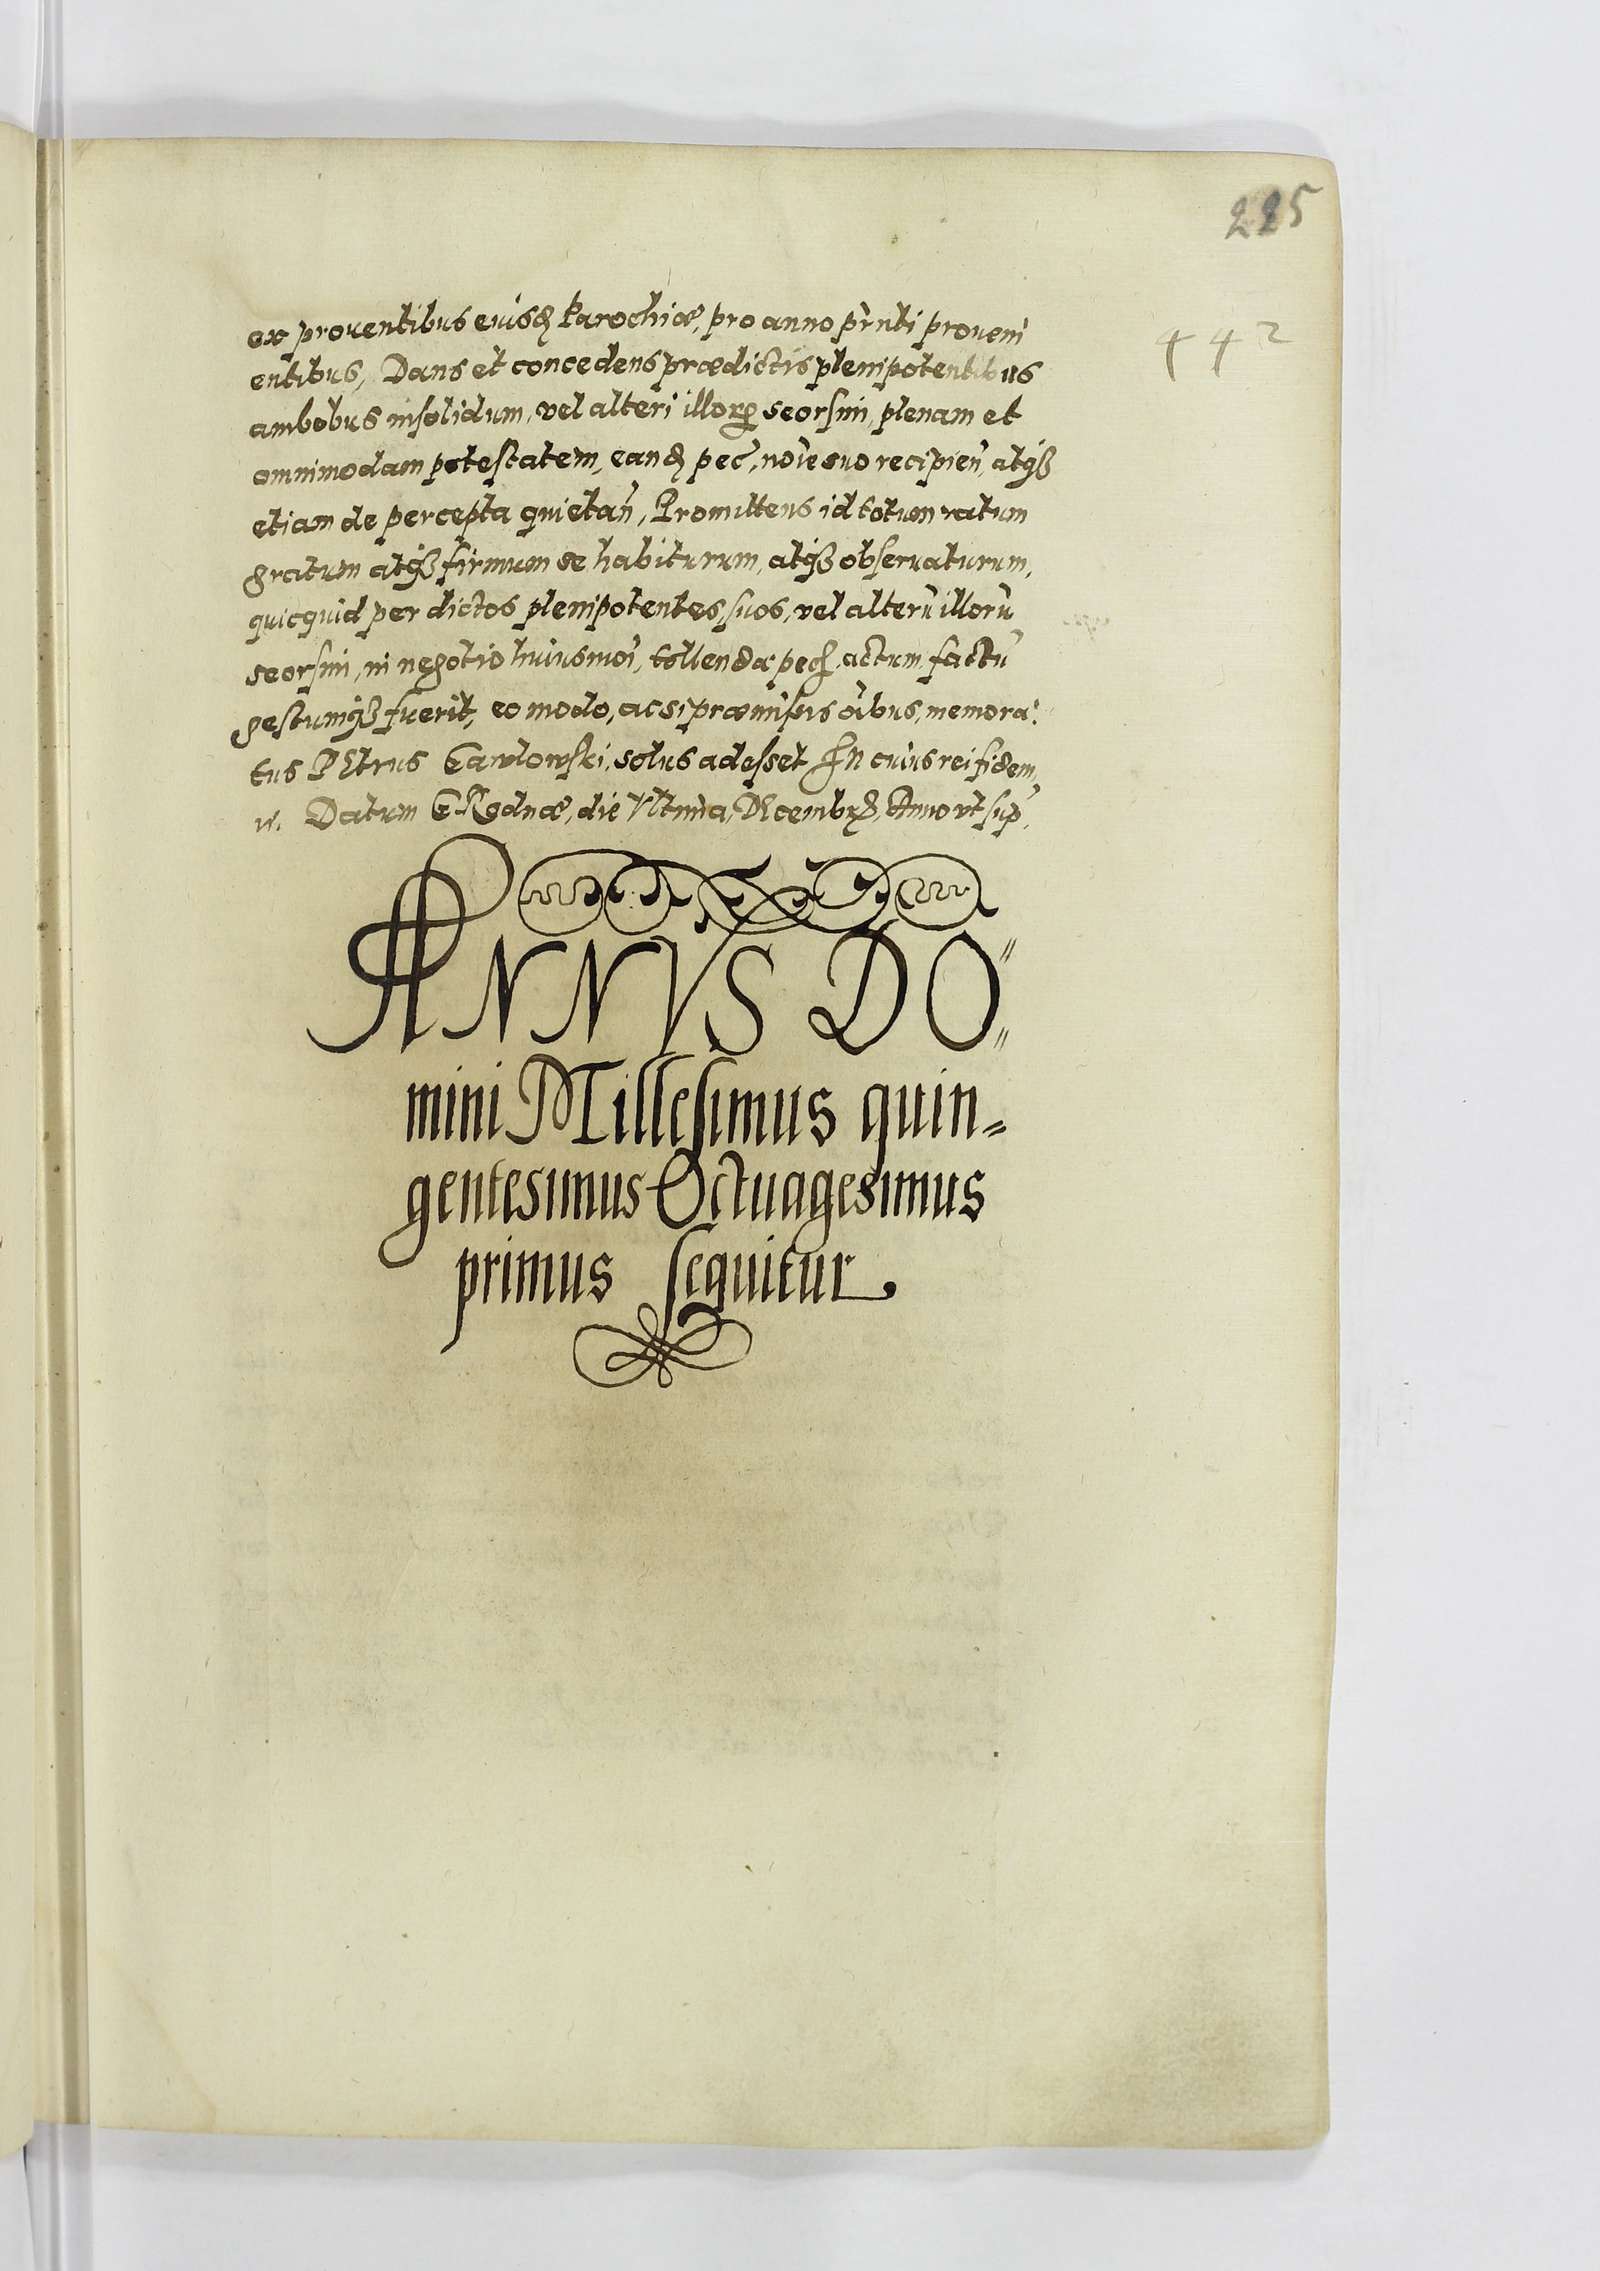 225
442
ex prouentibus eiusꝫ Parochiæ, pro anno pr̃nti proueni
entibus, Dans et concedens prædictis plenipotentibus
ambobus insolidum, vel alteri illorꝝ seorsim, plenam et
omnimodam potestatem, eandꝫ pec̃, noi͠e suo recipien̄, atqꝫ
etiam de percepta quietan̄, Promittens id totum ratum
gratum atqꝫ firmum se habiturum, atqꝫ obseruaturum,
quicquid per dictos plenipotentes suos, vel alterū illorū
seorsim, in negotio huiusmōi, tollendæ actum, factū
gestumqꝫ fuerit, eo modo, ac si præmissis oībus, memora:
tus PEtrus solus adesset In cuius rei fidem
Datum GRodnæ, die Vltima, DEcembrꝭ, Anno vt sup̄,
ANNVS DO=
mini MIllesimus quin=
gentesimus Octuagesimus
primus sequitur